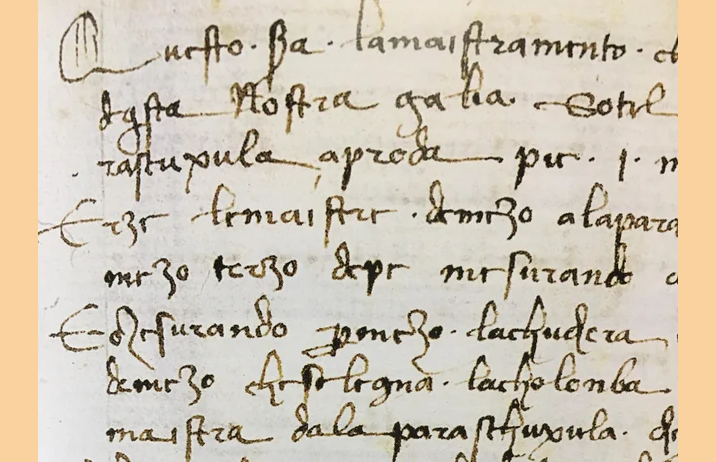 Questo · sia · lamaistramento · ch
deqsta Nostra galia · Sotil
rastuxula aproda pie · 1 · m
Erze lemaistre · demezo alapara
mezo terzo depe mesurando
Emesurando pmezo · lachudera
demezo cheselegna · lacholonba
maistra dala parasthuxula · de